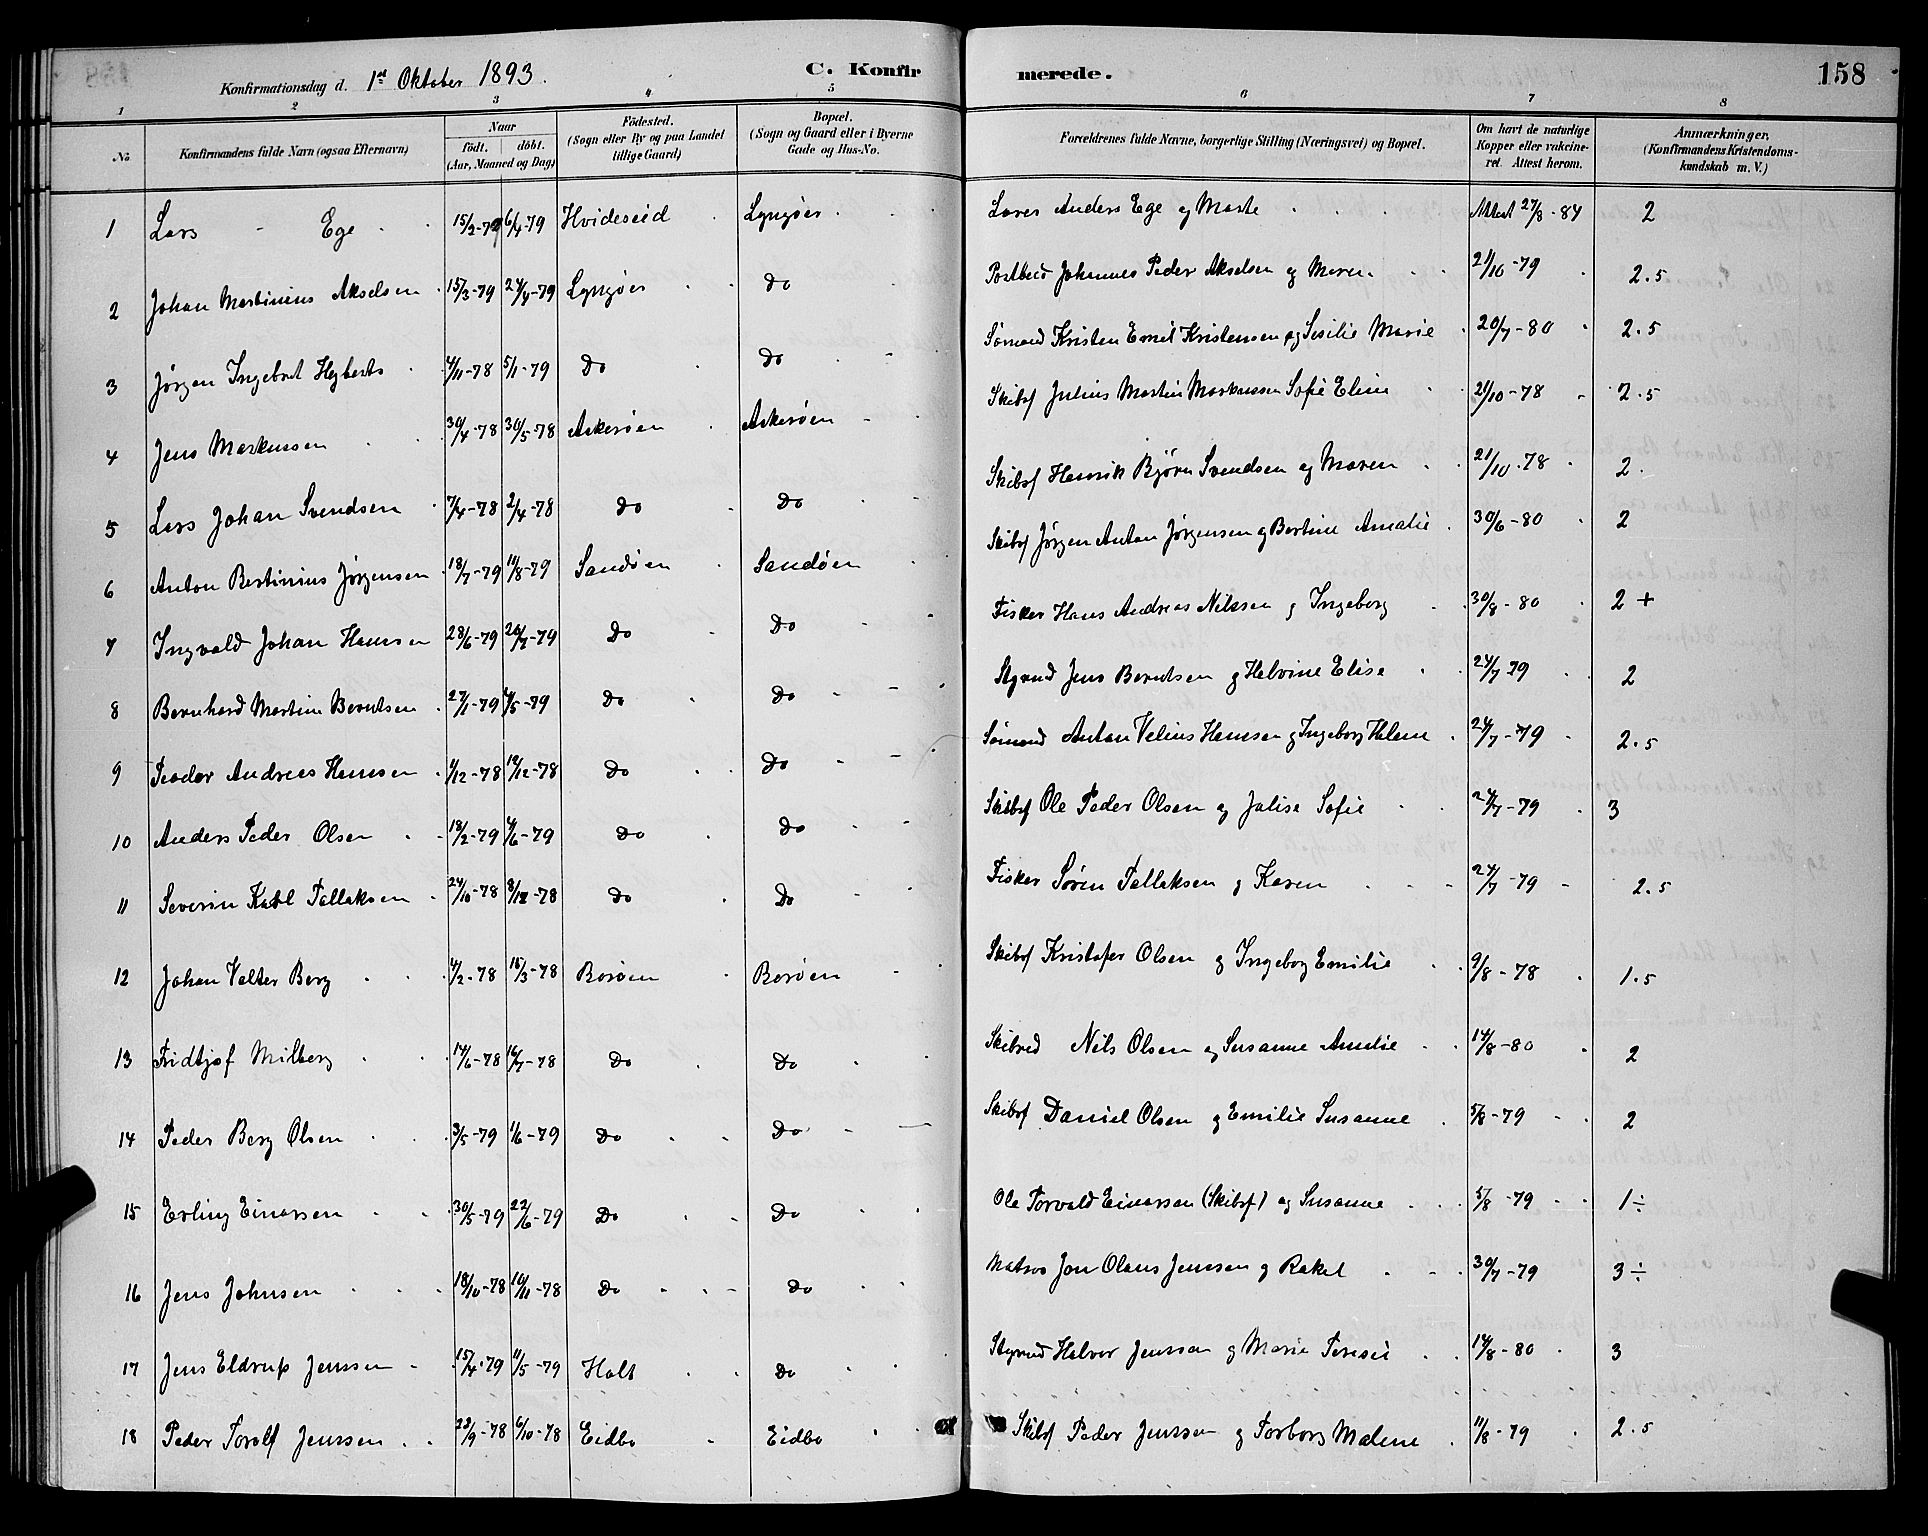 Konfirmationsdag d. 1ste Oktober 1893. C. Konfirmerede. 158
1 2 3 4 5 6 7 8
No Konfirmandens fulde Navn (ogsaa Efternavn) Naar født. døbt. (Aar, Maaned og Dag) Födested. (Sogn eller By og paa Landet tillige Gaard) Bopæl. (Sogn og Gaard eller i Byerne Gade og Hus-No. Forældrenes fulde Navne, borgerlige Stilling (Næringsvei) og Bopæl. Om havt de naturlige Kopper eller vakcineret. Attest herom. Anmærkninger, (Konfirmandens Kristendomskundskab m. V.)
1 Lars Ege 15/2-79 6/4-79 Hvideseid Lyngøer Anders Ege og Marte Attest 27/8-84 2
2 Johan Martinius Akselsen 15/3-79 24/4-79 Lyngøer Do Johannes Peder Akselsen og Maren 21/10-79 2.5
3 Jørgen Ingebret 4/11-78 5/1-79 Do Do Sømand Kristen Emil Kristensen og Sesilie Marie 20/7-80 2.5
4 Jens Markussen 30/4-78 30/5-78 Askerøen Askerøen Skibsf Julius Martin Markussen Sofie Eline 21/10-78 2.5
5 Lars Johan Svendsen 7/4-78 2/4-78 Do Do Skibsf Henrik Bjørn Svendsen og Maren 21/10-78 2.
6 Anton Bertinius Jørgensen 18/7-79 11/8-79 Sandøen Sandøen Skibsf Jørgen Anton Jørgensen og Bertine Amalie 30/6-80 2
7 Ingvald Johan Hansen 28/6-79 20/7-79 Do Do Fisker Hans Andreas Nilssen og Ingeborg 30/8-80 2 +
8 Bernhard Martin Berntsen 27/1-79 4/5-79 Do Do Styrmd Jens Berntsen og Helvine Elise 24/7 79 2
9 Teodor Andreas Hansen 1/12-78 19/12-78 Do Do Sømand Anton Velius Hansen og Ingeborg Helene 24/7-79 2.5
10 Anders Peder Olsen 18/2-79 4/6-79 Do Do Skibsf Ole Peder Olsen og Jalise Sofie 24/7-79 3
11 Severin Karl Tallaksen 24/10-78 8/12-78 Do Do Fisker Søren Tallaksen og Karen 24/7-79 2.5
12 Johan Valter Berg 4/2-78 15/3-78 Borøen Borøen Skibsf Kristofer Olsen og Ingeborg Emilie 9/8-78 1.5
13 Fridtjof Milberg 14/6-78 16/7-78 Do Do Nils Olsen og Susanne Amalie 14/8-80 2
14 Peder Berg Olsen 3/5-79 1/6-79 Do Do Skibsf Daniel Olsen og Emilie Susanne 5/8-79 2
15 Erling Einarsen 30/5-79 22/6-79 Do Do Ole Torvald Einarsen (Skibsf) og Susanne 5/8-79 1÷
16 Jens Johnsen 18/10-78 10/11-78 Do Do Matros Jon Olaus Jenssen og Rakel 30/7-79 3÷
17 Jens Eldrup Jenssen 15/4-79 11/5-79 Holt Do Styrmd Halvor Jenssen og Marie Teresie 14/8-80 3
18 Peder Torolf Jenssen 22/9-78 6/10-78 Eidbo Eidbo Skibsf Peder Jenssen og Torborg Malene 11/8-79 2.5